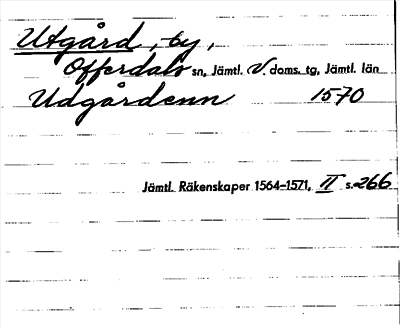 Utgård, by,
Offerdals sn, Jämtl. V. doms. tg, Jämtl. län
Udgårdenn 1570
Jämtl. Räkenskaper 1564-1571, II s.266